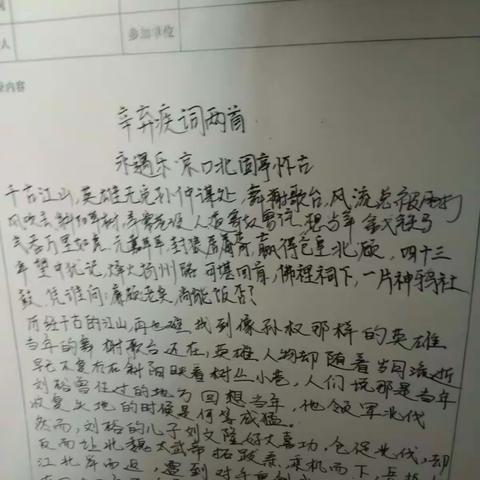 人
参加单位
内容
辛弃疾词两首
永遇乐·京口北固亭怀古
千古江山,英雄无觅孙仲谋处,舞榭歌台,风流总被雨打
风吹去,斜阳草树,寻常巷陌,人道寄奴曾住,想当年金戈铁马
气吞万里如虎,元嘉草草,封狼居胥,赢得仓皇北顾,四十三
年望中犹记,烽火扬州路可堪回首,佛狸祠下,一片神鸦社
鼓,凭谁问:廉颇老矣,尚能饭否?
历经千古的江山,再也难找到像孙权那样的英雄
当年的舞榭歌台还在,英雄人物却随着岁月流逝
早已不复存在斜阳映着树丛小巷,人们说那是当年
刘裕曾住过的地方 回想当年,他领军北伐
收复失地的时候是何等威猛。
然而,刘裕的儿子刘义隆好大喜功,仓促北伐,却
反而让北魏太武帝拓跋焘乘机而下,兵
江北岸而返,遭到对手重创